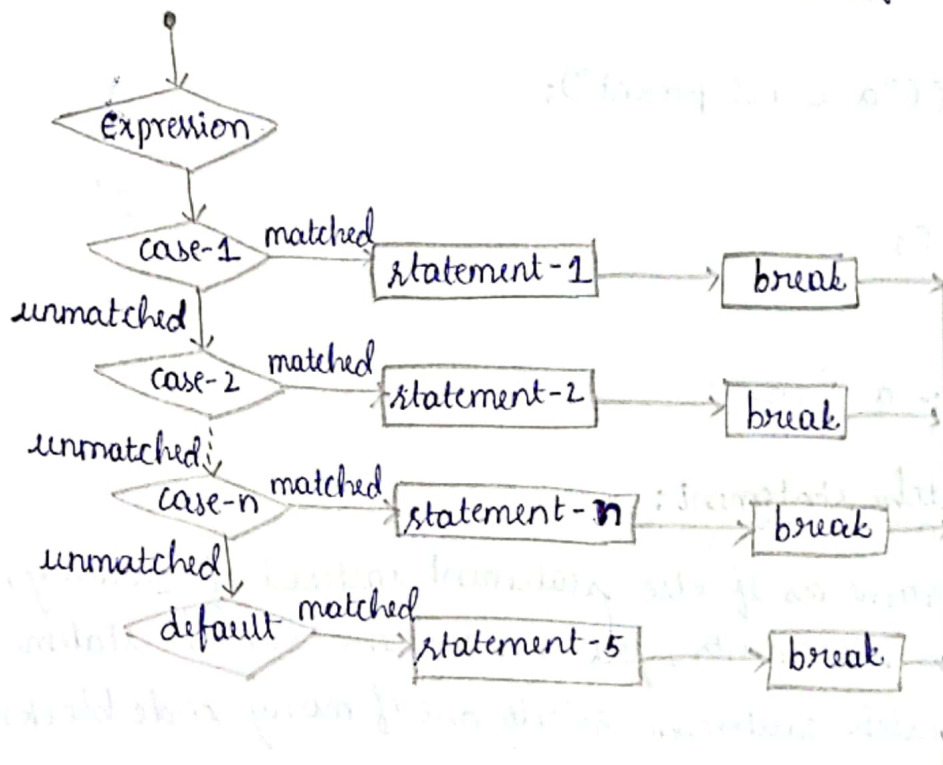 expression
case-1 matched statement-1 break
unmatched
case-2 matched statement-2 break
unmatched
case-n matched statement-n break
unmatched
default matched statement-5 break